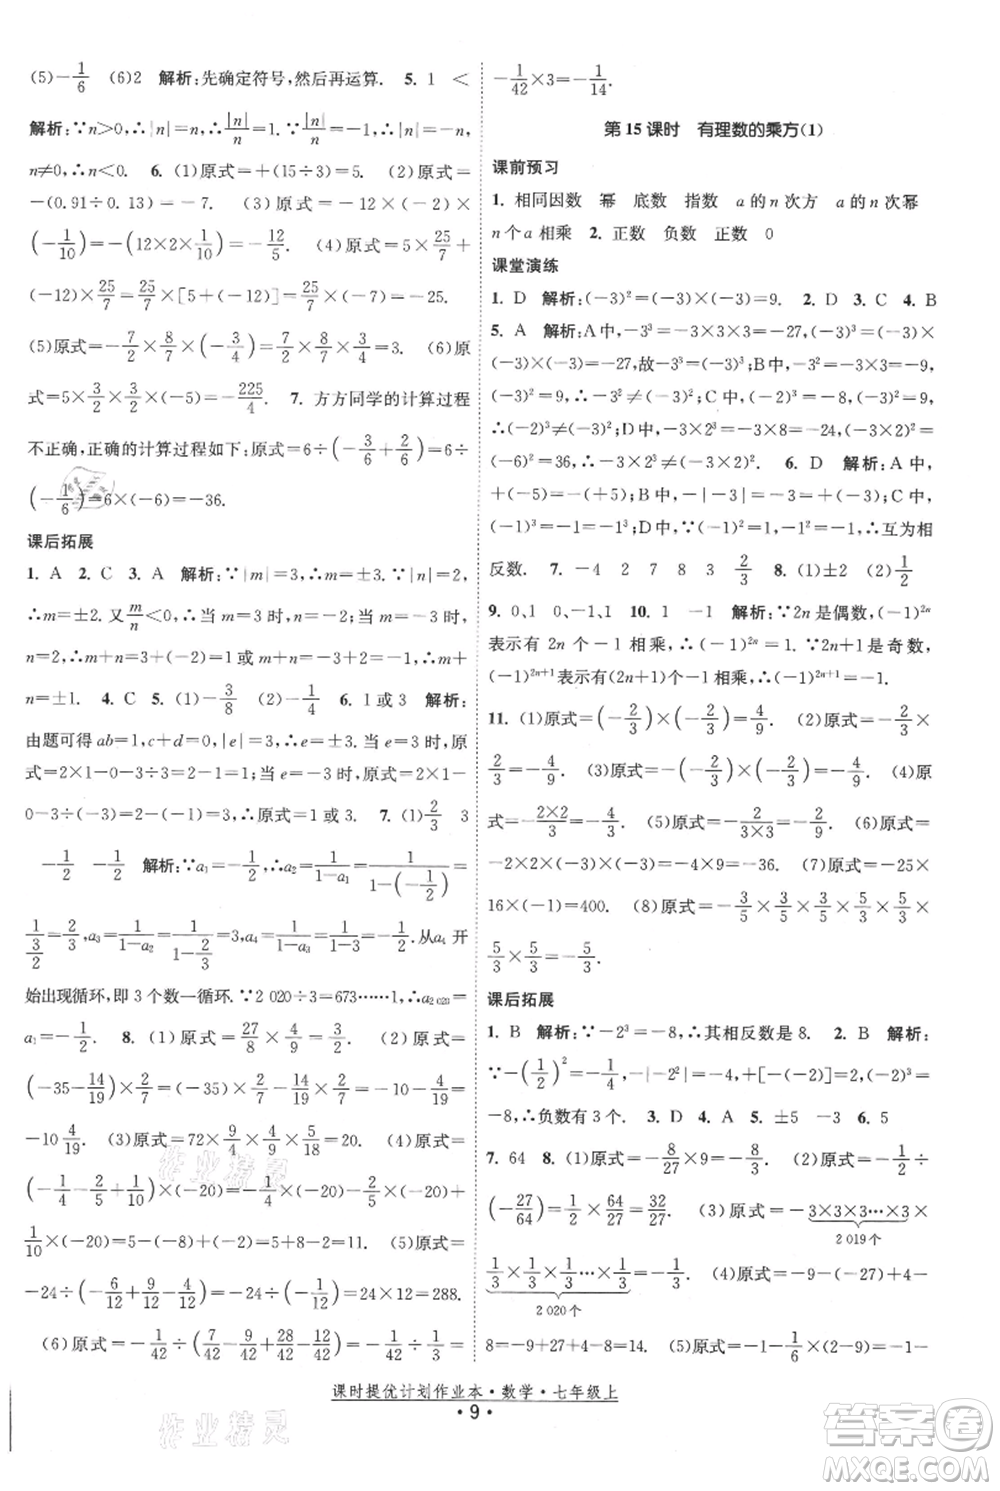 (5)－1/6　(6)2　解析:先确定符号,然后再运算.　5. 1　＜
解析:∵n＞0,∴|n|＝n,∴|n|/n＝n/n＝1;∵|n|＝－n,
n≠0,∴n＜0.　6. (1)原式＝＋(15÷3)＝5.　(2)原式＝
－(0.91÷0.13)＝－7.　(3)原式＝－12×(－2)×
(－1/10)＝－(12×2×1/10)＝－12/5.　(4)原式＝5×25/7＋
(－12)×25/7＝25/7×[5＋(－12)]＝25/7×(－7)＝－25.
(5)原式＝－7/2×8/7×(－3/4)＝7/2×8/7×3/4＝3.　(6)原
式＝5×3/2×3/2×4×(－5)＝－225/4.　7. 方方同学的计算过程
不正确,正确的计算过程如下:原式＝6÷(－3/6＋2/6)＝6÷
(－1/6)＝6×(－6)＝－36.
课后拓展
1. A　2. C　3. A　解析:∵|m|＝3,∴m＝±3.∵|n|＝2,
∴n＝±2. 又 m/n＜0,∴当 m＝3 时,n＝－2;当 m＝－3 时,
n＝2,∴m＋n＝3＋(－2)＝1 或 m＋n＝－3＋2＝－1,∴m＋
n＝±1.　4. C　5. (1)－3/8　(2)－1/4　6. 1 或 3　解析:
由题可得 ab＝1,c＋d＝0,|e|＝3,∴e＝±3. 当 e＝3 时,原
式＝2×1－0－3÷3＝2－0－1＝1;当 e＝－3 时,原式＝2×1－
0－3÷(－3)＝2＋1＝3,∴原式＝1 或 3.　7. (1)2/3　3
－1/2　－1/2　解析:∵a₁＝－1/2,∴a₂＝1/(1－a₁)＝1/(1－(－1/2))＝
1/(3/2)＝2/3,a₃＝1/(1－a₂)＝1/(1－2/3)＝3,a₄＝1/(1－a₃)＝1/(1－3)＝－1/2. 从 a₄ 开
始出现循环,即 3 个数一循环.∵2 020÷3＝673……1,∴a₂ ₀₂₀＝
a₁＝－1/2.　8. (1)原式＝27/8×4/9×4/9＝2/3.　(2)原式＝
(－35－14/19)×(－2/7)×(－1)＝(－35)×2/7－14/19×2/7＝－10－4/19＝
－10 4/19.　(3)原式＝72×9/4×4/9×5/3＝120.　(4)原式＝
(－1/4－2/5＋1/10)×(－20)＝－1/4×(－20)－2/5×(－20)＋
1/10×(－20)＝5＋8－2＝11.　(5)原式＝
－24÷(－6/12＋9/12－4/12)＝－24÷(－1/12)＝24×12＝288.
(6)原式＝－1/42÷(7/42－9/42＋28/42－12/42)＝－1/42÷14/42＝
－1/42×3＝－1/14.
第 15 课时　有理数的乘方(1)
课前预习
1. 相同因数　幂　底数　指数　a 的 n 次方　a 的 n 次幂
n 个 a 相乘　2. 正数　负数　正数　0
课堂演练
1. D　解析:(－3)²＝(－3)×(－3)＝9.　2. D　3. C　4. B
5. A　解析:A中,－3³＝－3×3×3＝－27,(－3)³＝(－3)×
(－3)×(－3)＝－27,故－3³＝(－3)³;B中,－3²＝－3×3＝－9,
(－3)²＝(－3)×(－3)＝9,∴－3²≠(－3)²;C中,－2³＝－8,
∴(－2)³≠(－3)²;D中,－3×2³＝－3×8＝－24,(－3×2)²＝
(－6)²＝36,∴－3×2³≠(－3×2)².　6. D　解析:A中,
－2³＝－8,(－2)³＝－8;B中,－|－3|＝－3,－(＋3)＝－3;
C中,－4²＝－16;D中,∵(－1)²＝1,－1²＝－1,∴互为相
反数.　7. －4　2　7　8　3　2/3　8. (1)125　(2)1/2
9. 0,1　0,－1,1　10. 1　－1　解析:∵2n 是偶数,(－1)²ⁿ
表示有 2n 个－1 相乘,∴(－1)²ⁿ＝1.∵2n＋1 是奇数,
(－1)²ⁿ⁺¹ 表示有(2n＋1)个－1 相乘,∴(－1)²ⁿ⁺¹＝－1.
11. (1)原式＝(－2/3)×(－2/3)＝4/9.　(2)原式＝－2/3×
2/3＝－4/9.　(3)原式＝－(－2/3)×(－2/3)＝－4/9.　(4)原
式＝－2×2/3＝－4/3.　(5)原式＝－2/(3×3)＝－2/9.　(6)原式＝
－2×2×(－3)×(－3)＝－4×9＝－36.　(7)原式＝－25×
16×(－1)＝400.　(8)原式＝－3/5×3/5×3/5×5/3×5/3×
5/3×5/3＝－5/3.
课后拓展
1. B　解析:∵－2³＝－8,∴其相反数是 8.　2. B　解析:
∵－(1/2)²＝－1/4,－|－4|＝－4,＋[－(－2)]＝2,－2³＝
－8,∴负数有 3 个.　3. D　4. A　5. ±5　－3　6. 5
7. 64　8. (1)原式＝－2/27×9＝－2/3.　(2)原式＝－8/9×
(－27/64)×64/27×64/…＝32/27.　(3)原式＝－3×3×3×…×3×
2 019个
1/3×1/3×1/3×…×1/3＝－1/3.　(4)原式＝－9－(－27)＋4－
2 020个
8＝－9＋27＋4－8＝14.　(5)原式＝－1－1/6×(－9)＝－1－
课时提优计划作业本·数学·七年级上
·9·
作业精灵
作业精灵
答案圈
MXQE.COM